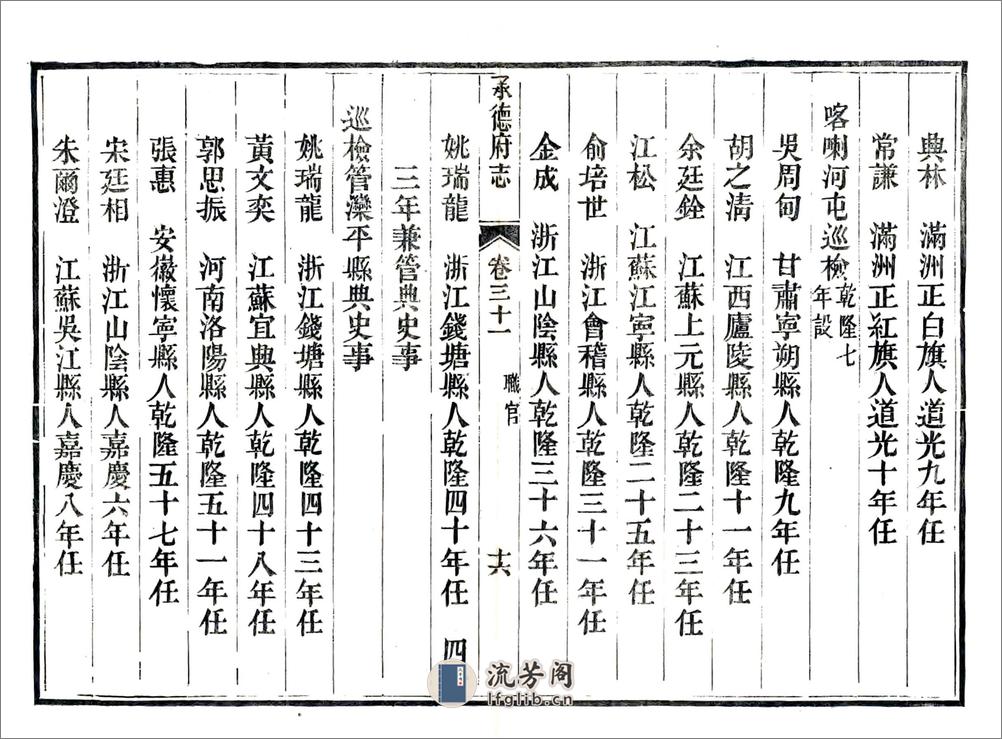 典林　滿洲正白旗人道光九年任
常謙　滿洲正紅旗人道光十年任
喀喇河屯巡檢乾隆七年設
吳周甸　甘肅寧朔縣人乾隆九年任
胡之清　江西廬陵縣人乾隆十一年任
余廷銓　江蘇上元縣人乾隆二十三年任
江松　江蘇江寧縣人乾隆二十五年任
俞培世　浙江會稽縣人乾隆三十一年任
金成　浙江山陰縣人乾隆三十六年任
承德府志　卷三十一　職官　十六
姚瑞龍　浙江錢塘縣人乾隆四十年任　四十
三年兼管典史事
巡檢管灤平縣典史事
姚瑞龍　浙江錢塘縣人乾隆四十三年任
黃文奕　江蘇宜興縣人乾隆四十八年任
郭思振　河南洛陽縣人乾隆五十一年任
張惠　安徽懷寧縣人乾隆五十七年任
宋廷相　浙江山陰縣人嘉慶六年任
朱爾澄　江蘇吳江縣人嘉慶八年任
流芳阁
lfglib.cn